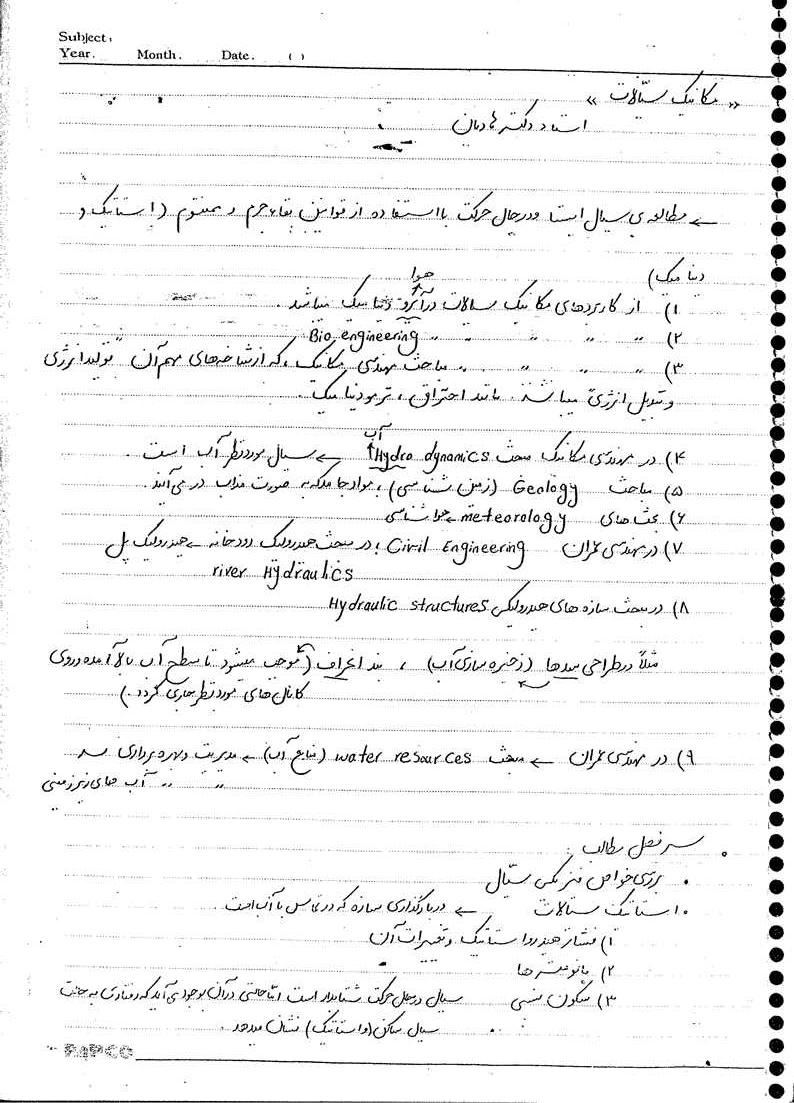 Subject:
Year. Month. Date. ( )
« مکانیک سیالات »
استاد دکتر هادیان
← مطالعه ی سیال ایستا و درحال حرکت با استفاده از قوانین بقاء جرم و ممنتوم (استاتیک و
دینامیک)
هوا
۱) از کاربردهای مکانیک سیالات در آئرودینامیک میباشد.
۲) " " " " Bio engineering
۳) " " " " مباحث مهندسی مکانیک، که از شاخه های مهم آن تولید انرژی
و تبدیل انرژی میباشد. مانند احتراق، ترمودینامیک.
آب
۴) در مهندسی مکانیک مبحث Hydro dynamics ← سیال مورد نظر آب است.
۵) مباحث Geology (زمین شناسی)، مواد جامد که به صورت مذاب در می آیند.
۶) بحث های meteorology ← هواشناسی
۷) در مهندسی عمران Civil Engineering، در مبحث هیدرولیک رودخانه ← هیدرولیک پل
river Hydraulics
۸) در مبحث سازه های هیدرولیکی Hydraulic structures
مثلاً در طراحی سدها (ذخیره سازی آب)، بند انحراف (موجب میشود تا سطح آب بالا آمده و روی
کانال های مورد نظر جاری گردد.)
۹) در مهندسی عمران ← مبحث water resources (منابع آب) ← مدیریت و بهره برداری سد
" " آب های زیرزمینی
• سرفصل مطالب:
• بررسی خواص فیزیکی سیال
• استاتیک سیالات ← در بارگذاری سازه که در تماس با آب است.
۱) فشار هیدرواستاتیک و تغییرات آن
۲) مانومترها
۳) سکون نسبی سیال درحال حرکت شتابدار است اما حالتی در آن بوجود می آید که رفتاری به حالت
سیال ساکن (استاتیک) نشان میدهد.
PAPCO